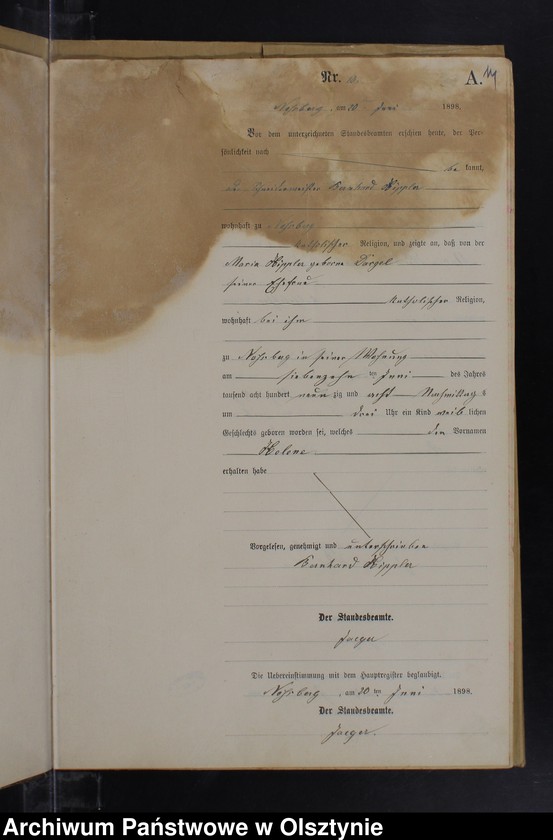 Nr.
A.
Nossberg, am 20 Juni 1898.
Vor dem unterzeichneten Standesbeamten erschien heute, der Per-
sönlichkeit nach
be kannt,
der Bernhard Hippler
wohnhaft zu Nossberg
katholischer Religion, und zeigte an, daß von der
Maria Hippler geborne
seiner Ehefrau
katholischer Religion,
wohnhaft bei ihm
zu Nossberg in seiner Wohnung
am siebenzehn ten Juni des Jahres
tausend acht hundert neun zig und acht Nachmittag s
um drei Uhr ein Kind weib lichen
Geschlechts geboren worden sei, welches den Vornamen
Helene
erhalten habe
Vorgelesen, genehmigt und unterschrieben
Bernhard Hippler
Der Standesbeamte.
Jaeger
Die Uebereinstimmung mit dem Hauptregister beglaubigt.
Nossberg, am 20 ten Juni 1898.
Der Standesbeamte.
Jaeger.
Archiwum Państwowe w Olsztynie